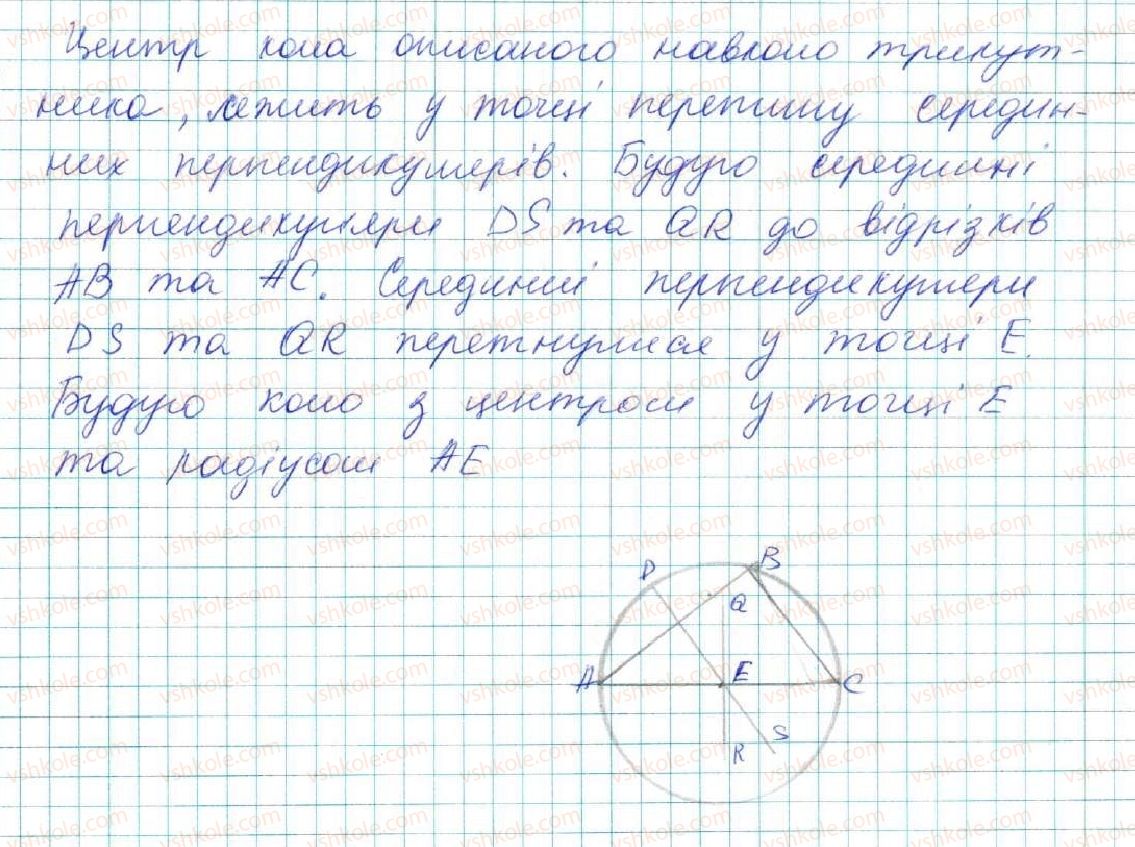 Центр кола описаного навколо трикут-
ника, лежить у точці перетину середин-
них перпендикулярів. Будую серединні
перпендикуляри DS та QR до відрізків
AB та AC. Серединні перпендикуляри
DS та QR перетнулися у точці E.
Будую коло з центром у точці E
та радіусом AE
D B
Q
A E C
S
R
vshkole.com